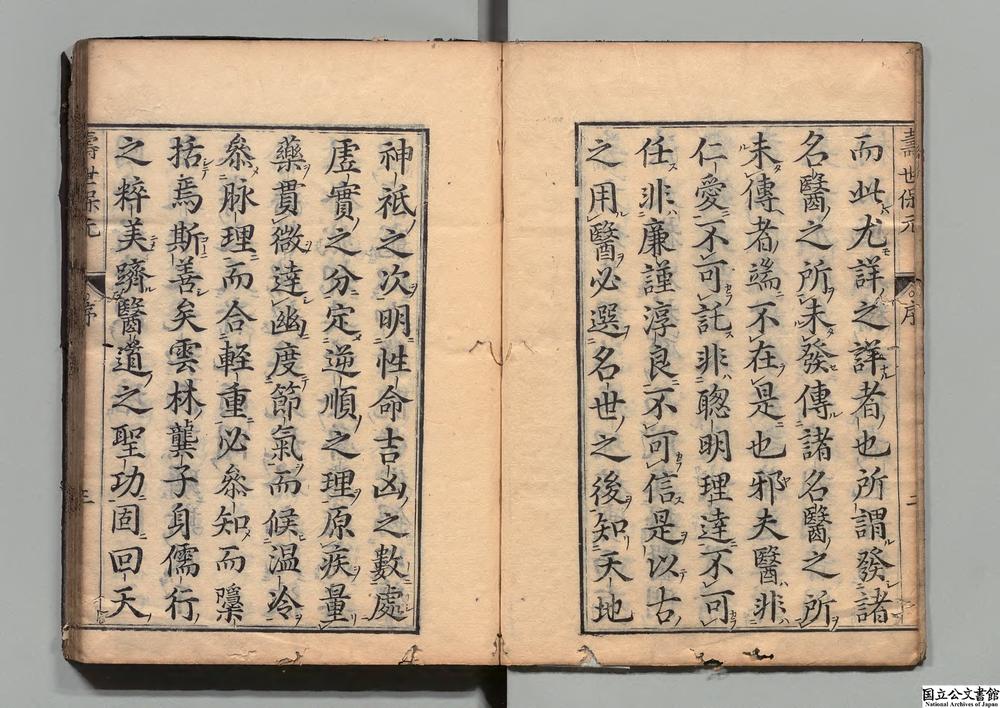 壽世保元
序
二
而此尤詳之詳者也所謂發諸
名醫之所未發傳諸名醫之所
未傳者端不在是也邪夫醫非
仁愛不可託非聰明理達不可
任非廉謹淳良不可信是以古
之用醫必選名世之後知天地
神祇之次明性命吉凶之數處
虛實之分定逆順之理原疾量
藥貫微達幽度節氣而候温冷
叅脉理而合輕重必叅知而隱
括焉斯善矣雲林龔子身儒行
之粹美躋醫遺之聖功固回天
壽世保元
序
三
国立公文書館
National Archives of Japan